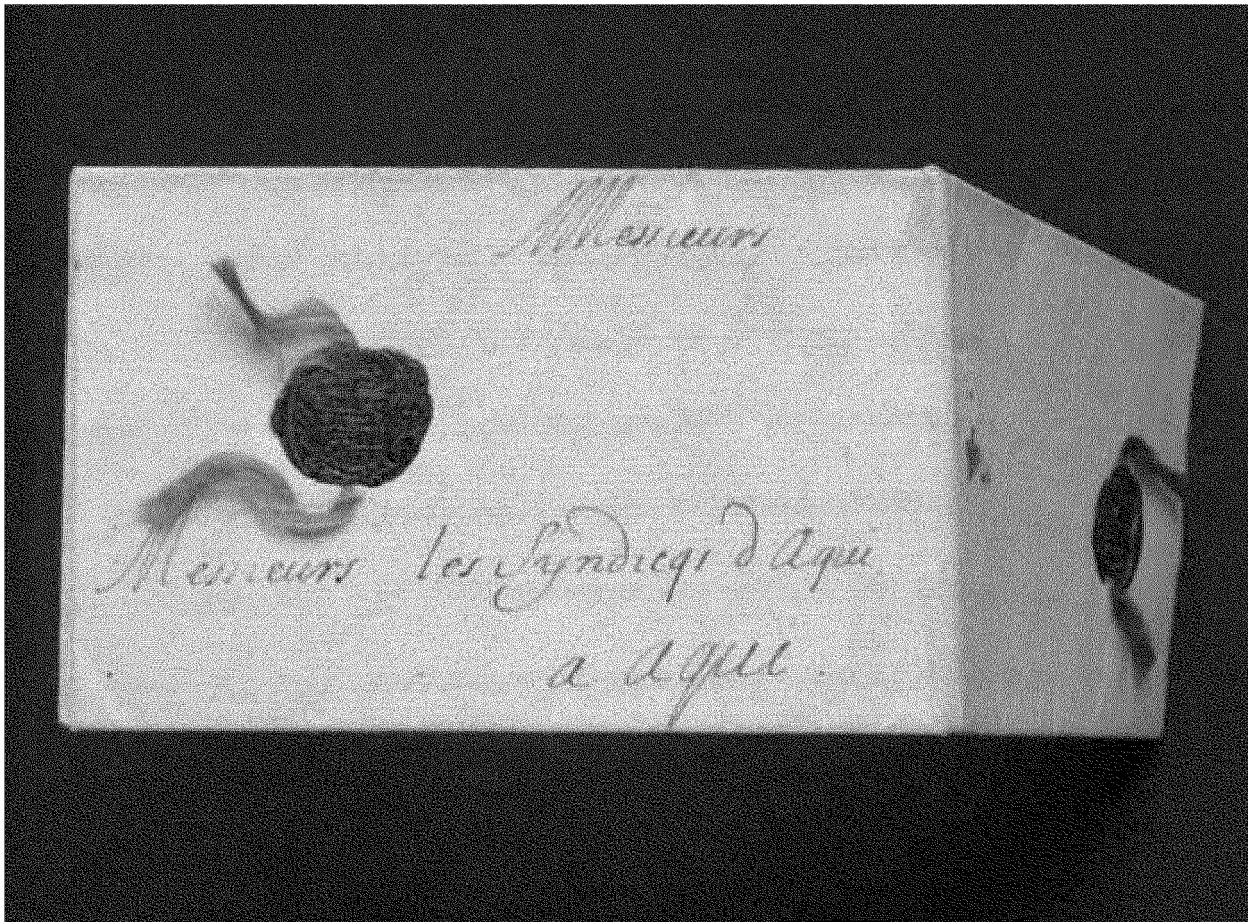 Messieurs
Messieurs les Syndicqs d'Aqui
a Aqui.